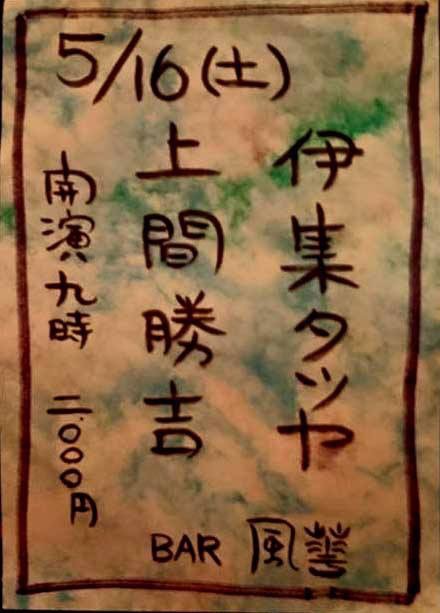 5/16(土)
伊集タツヤ
上間勝吉
開演九時 二.000円
BAR 風華